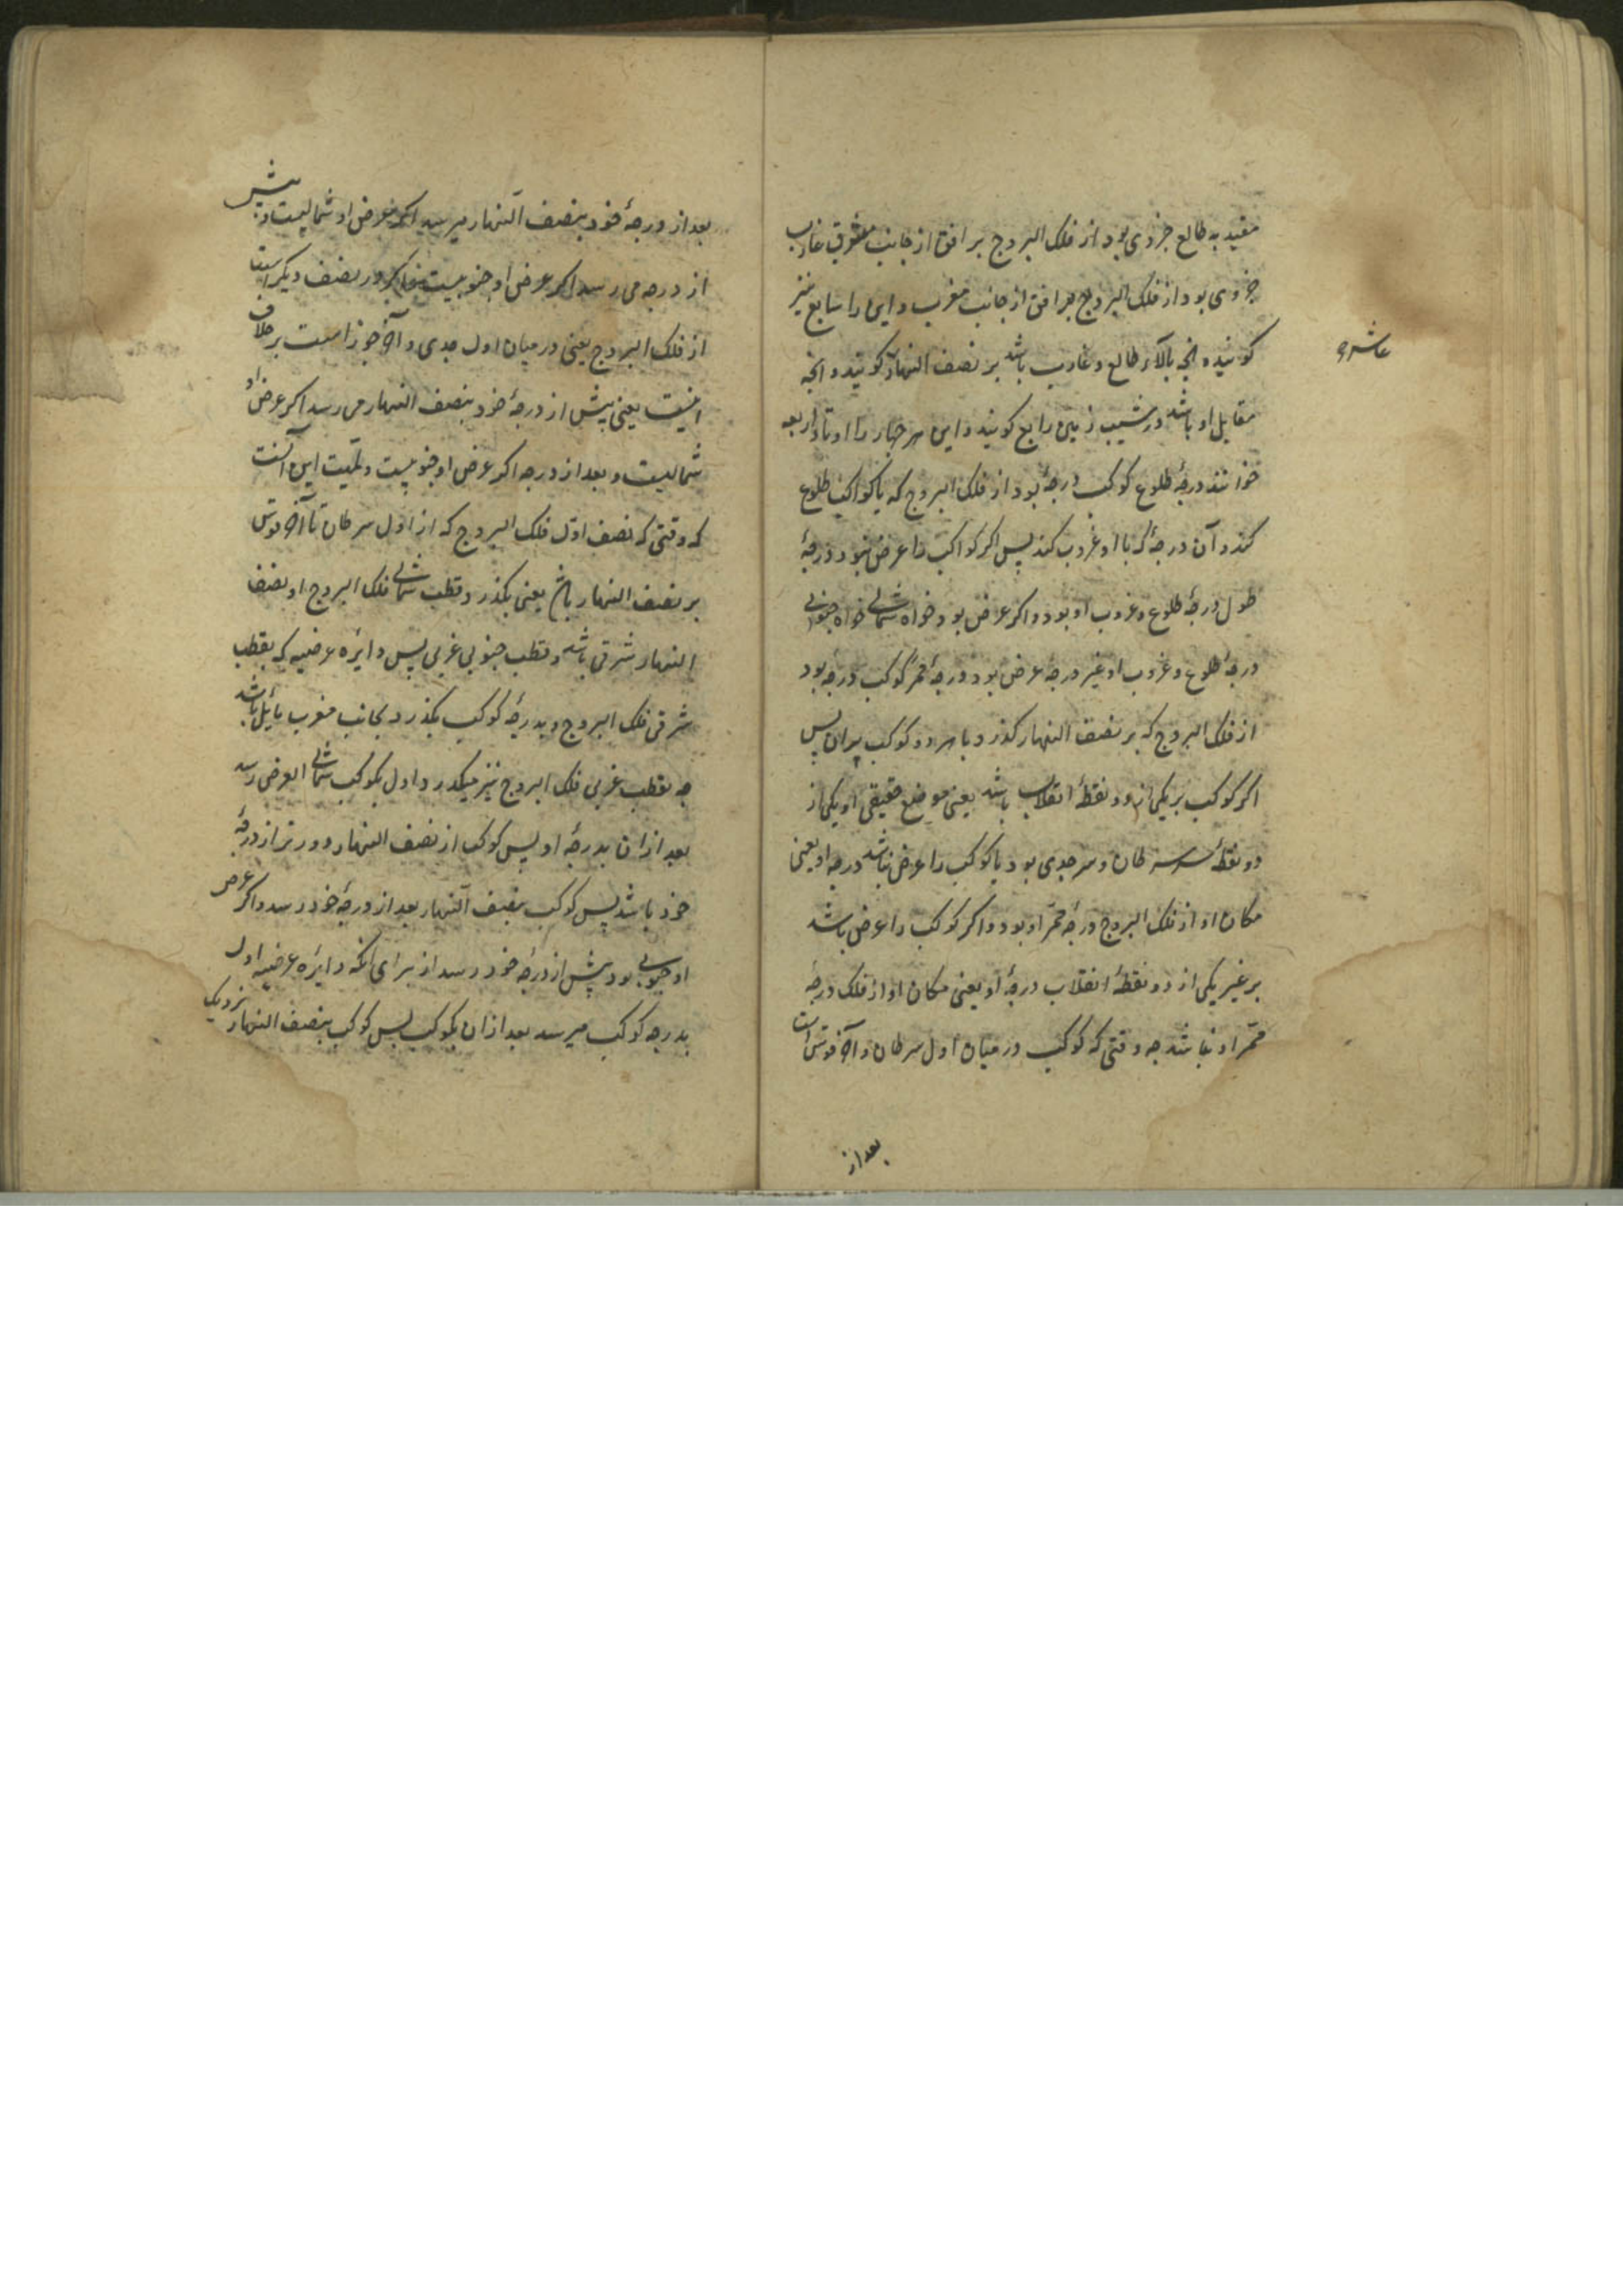 مقید به طالع جزوی بود از فلک البروج بر افق از جانب مشرق غارب
جزوی بود از فلک البروج بر افق از جانب مغرب و این را سابع نیز
کویند و انچه بالاء طالع و غارب باشد بر نصف النهار کویند و انچه
عاشر و
مقابل او باشد در شیب زمین رابع کویند و این هر چهار را اوتاد اربعه
خوانند درجهٔ طلوع کوکب درجهٔ بود از فلک البروج که با کواکب طلوع
کند و آن درجهٔ که با او غروب کند پس اکر کواکب را عرض نبود درجهٔ
طول درجهٔ طلوع و غروب او بود و اکر عرض بود خواه شمالی خواه جنوبی
درجهٔ طلوع و غروب او غیر درجهٔ عرض بود و درجهٔ ممر کوکب درجه بود
از فلک البروج که بر نصف النهار کذرد با مرور کوکب بران پس
اکر کوکب بر یکی از دو نقطهٔ انقلاب باشد یعنی موضع حقیقی او یکی از
دو نقطهٔ سر سرطان و سر جدی بود یا کوکب را عرض نباشد درجه او یعنی
مکان او از فلک البروج درجهٔ ممر او بود و اکر کوکب را عرض باشد
بر غیر یکی از دو نقطهٔ انقلاب درجهٔ او یعنی مکان او از فلک درجهٔ
ممر او نباشد چه وقتی که کوکب در میان اول سرطان و آخر قوس است
بعد از
بعد از درجهٔ خود بنصف النهار میرسد اکر عرض او شمالیست و پیش
از درجه می رسد اکر عرض او جنوبیست و اکر در نصف دیکر است
از فلک البروج یعنی در میان اول جدی و آخر جوزا است بر خلاف
اینست یعنی پیش از درجهٔ خود بنصف النهار می رسد اکر عرض او
شمالیست و بعد از درجه اکر عرض او جنوبیست و لمیت این آنست
که وقتی که نصف اول فلک البروج که از اول سرطان تا آخر قوس
بر نصف النهار باشد یعنی بکذرد قطب شمالی فلک البروج او نصف
النهار شرقی باشد و قطب جنوبی غربی پس دایره عرضیه که بقطب
شرقی فلک البروج و بدرجهٔ کوکب بکذرد بجانب مغرب مایل باشد
چه بقطب غربی فلک البروج نیز میکذرد و اول بکوکب شمالی العرض رسد
بعد ازان بدرجهٔ او پس کوکب از نصف النهار دورتر از درجهٔ
خود باشد پس کوکب بنصف النهار بعد از درجهٔ خود رسد و اکر عرض
او جنوبی بود پیش از درجهٔ خود رسد از برای انکه دایره عرضیه اول
بدرجه کوکب میرسد بعد ازان بکوکب پس کوکب بنصف النهار نزدیک